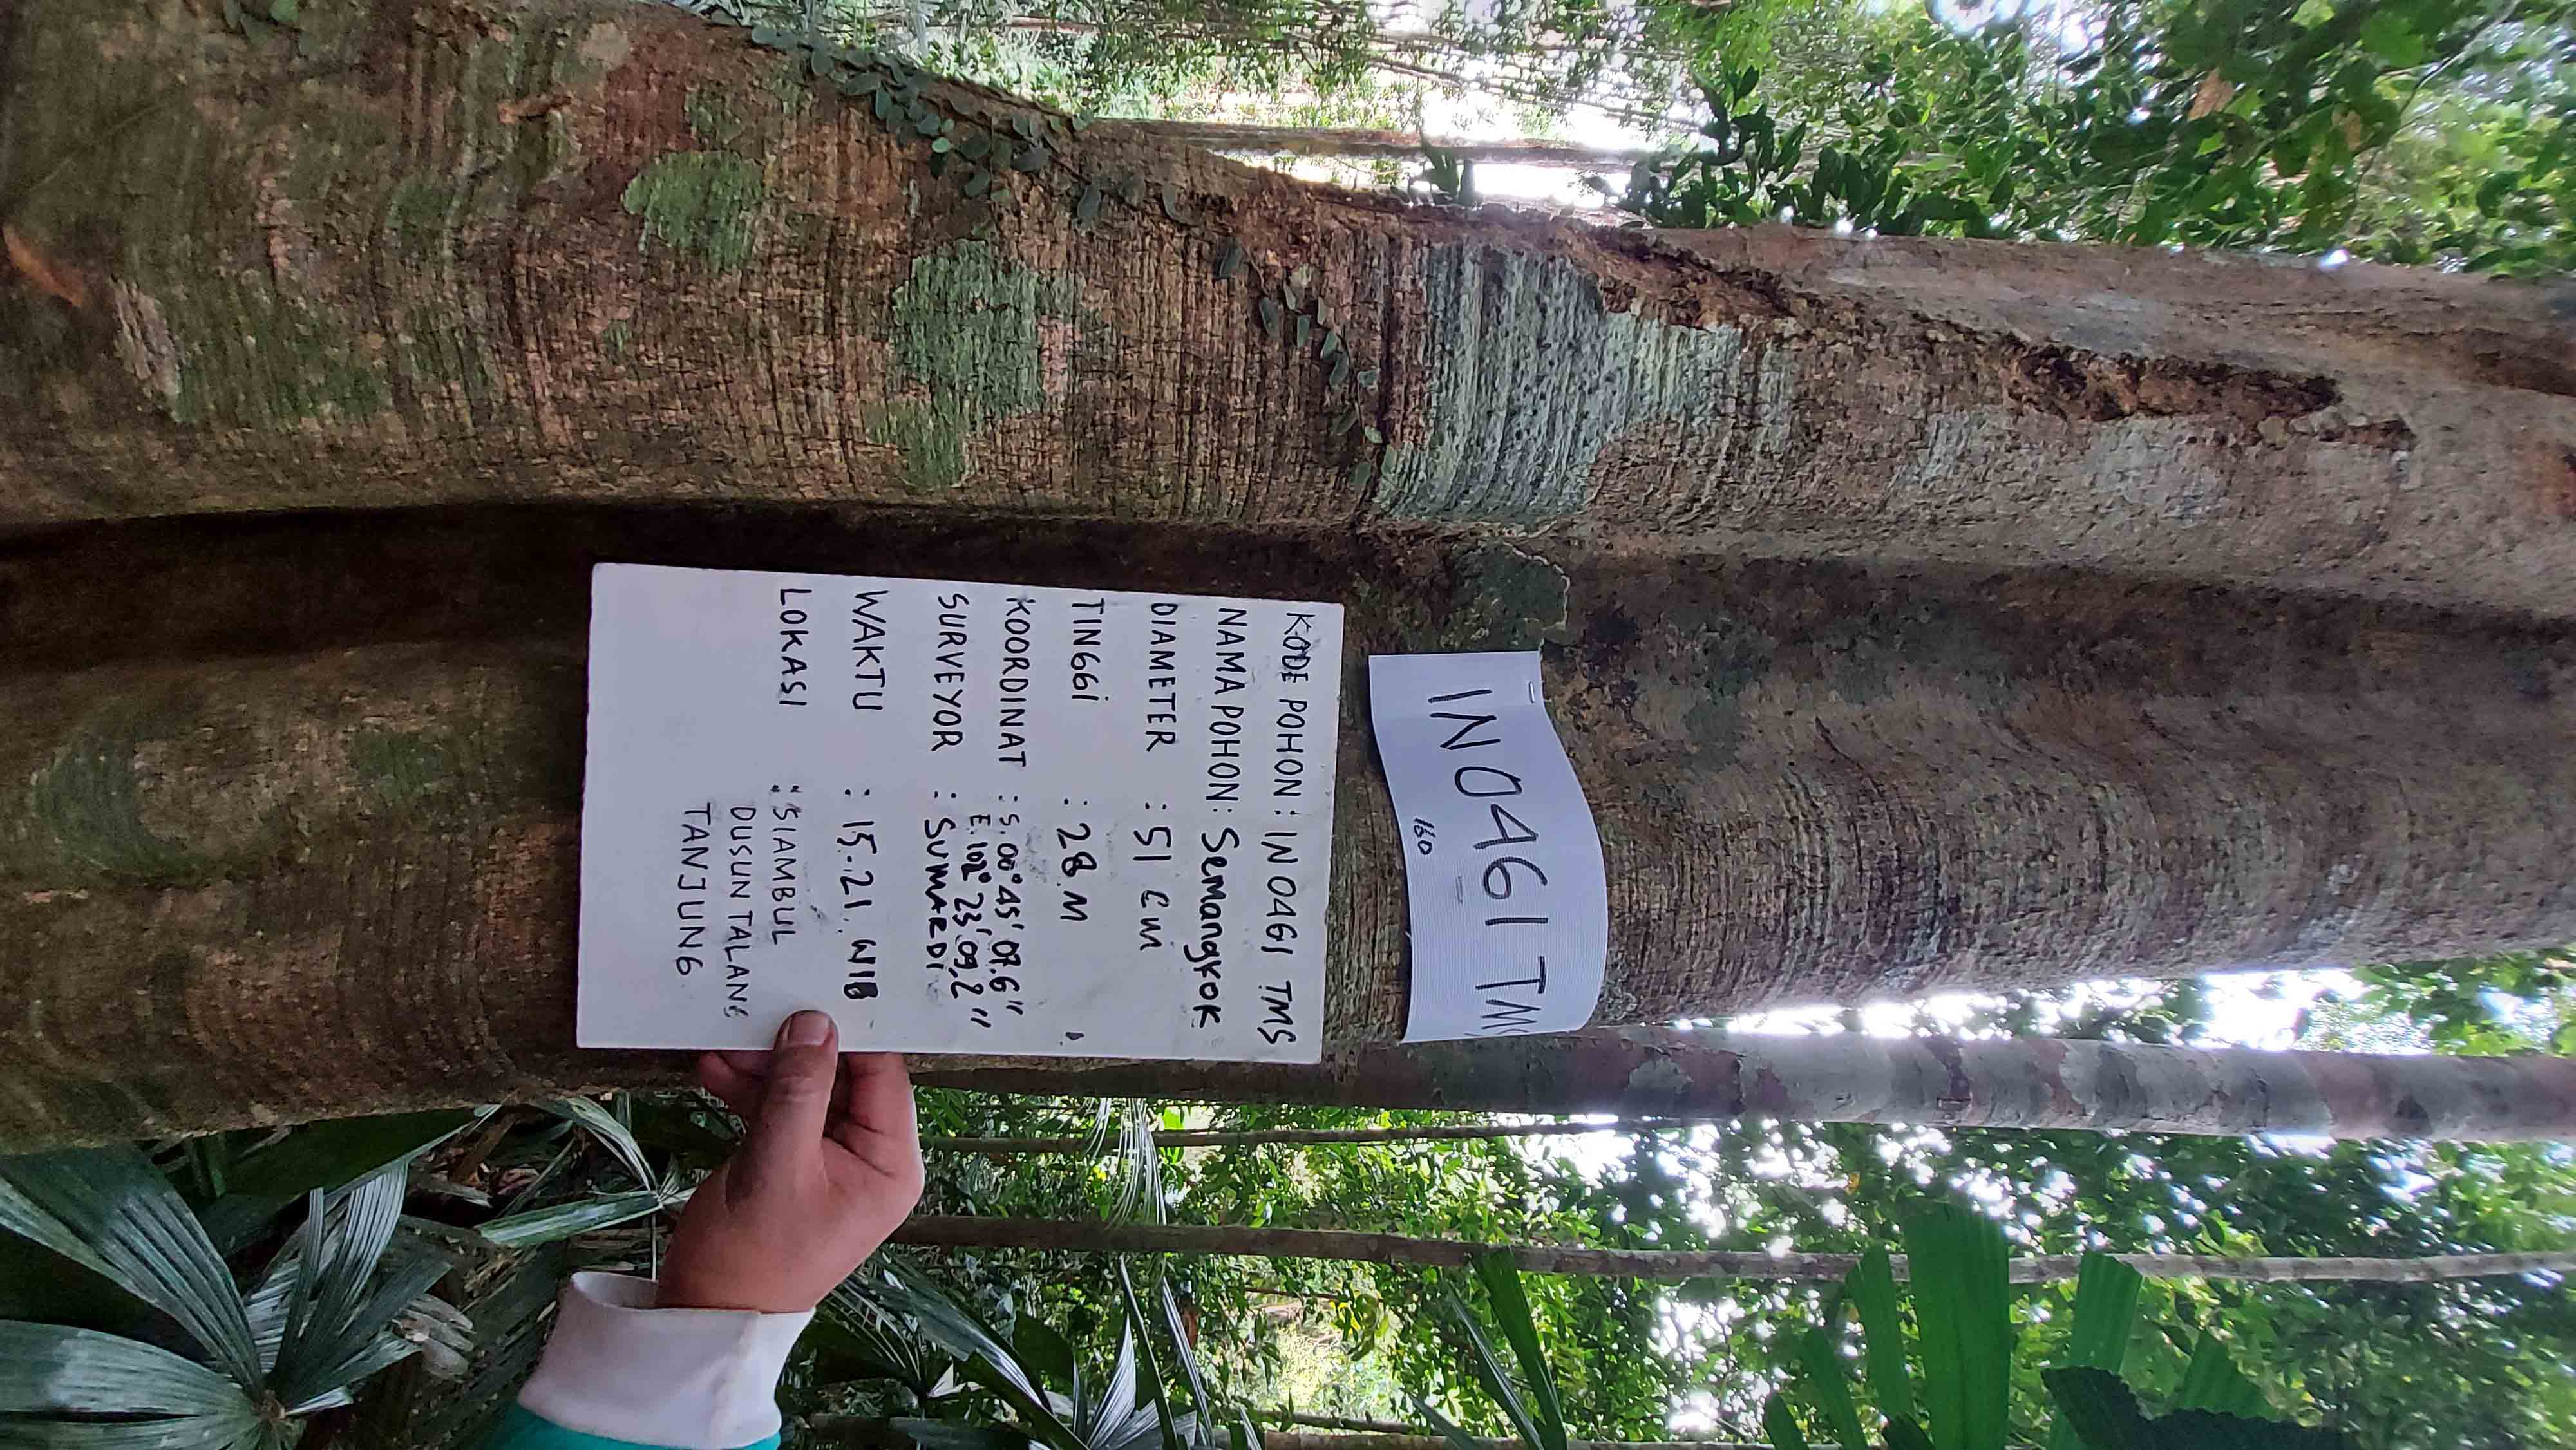 IN0461 TMS
160
KODE POHON : IN0461 TMS
NAMA POHON : Semangkok
DIAMETER : 51 cm
TINGGi : 28 M
KOORDINAT : S. 00° 45' 07.6"
E. 102° 23' 09,2"
SURVEYOR : SUMARDI
WAKTU : 15.21. WIB
LOKASI : SIAMBUL
DUSUN TALANG
TANJUNG